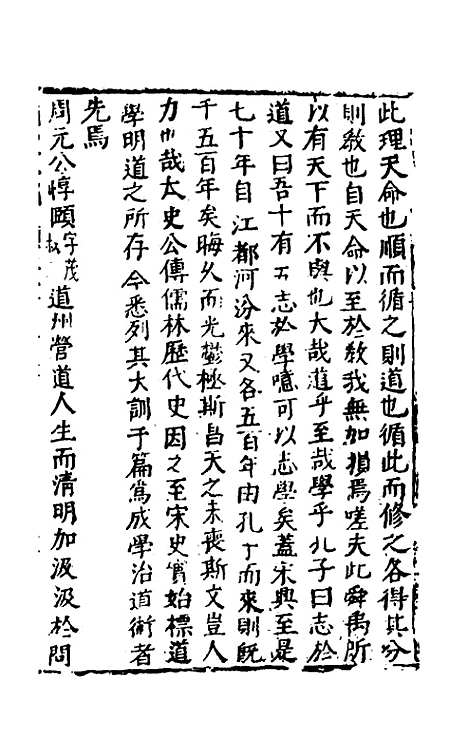 此理天命也順而循之則道也循此而修之各得其分
則教也自天命以至於教我無加損焉嗟夫此舜禹所
以有天下而不與也大哉道乎至哉學乎孔子曰志於
道又曰吾十有五志於學噫可以志學矣蓋宋興至是
七十年自江都河汾來又各五百年由孔子而來則旣
千五百年矣晦久而光鬱極斯昌天之未喪斯文豈人
力也哉太史公傳儒林歷代史因之至宋史實始標道
學明道之所存今悉列其大訓于篇爲成學治道術者
先焉
周元公惇頤字茂叔道州營道人生而清明加汲汲於問